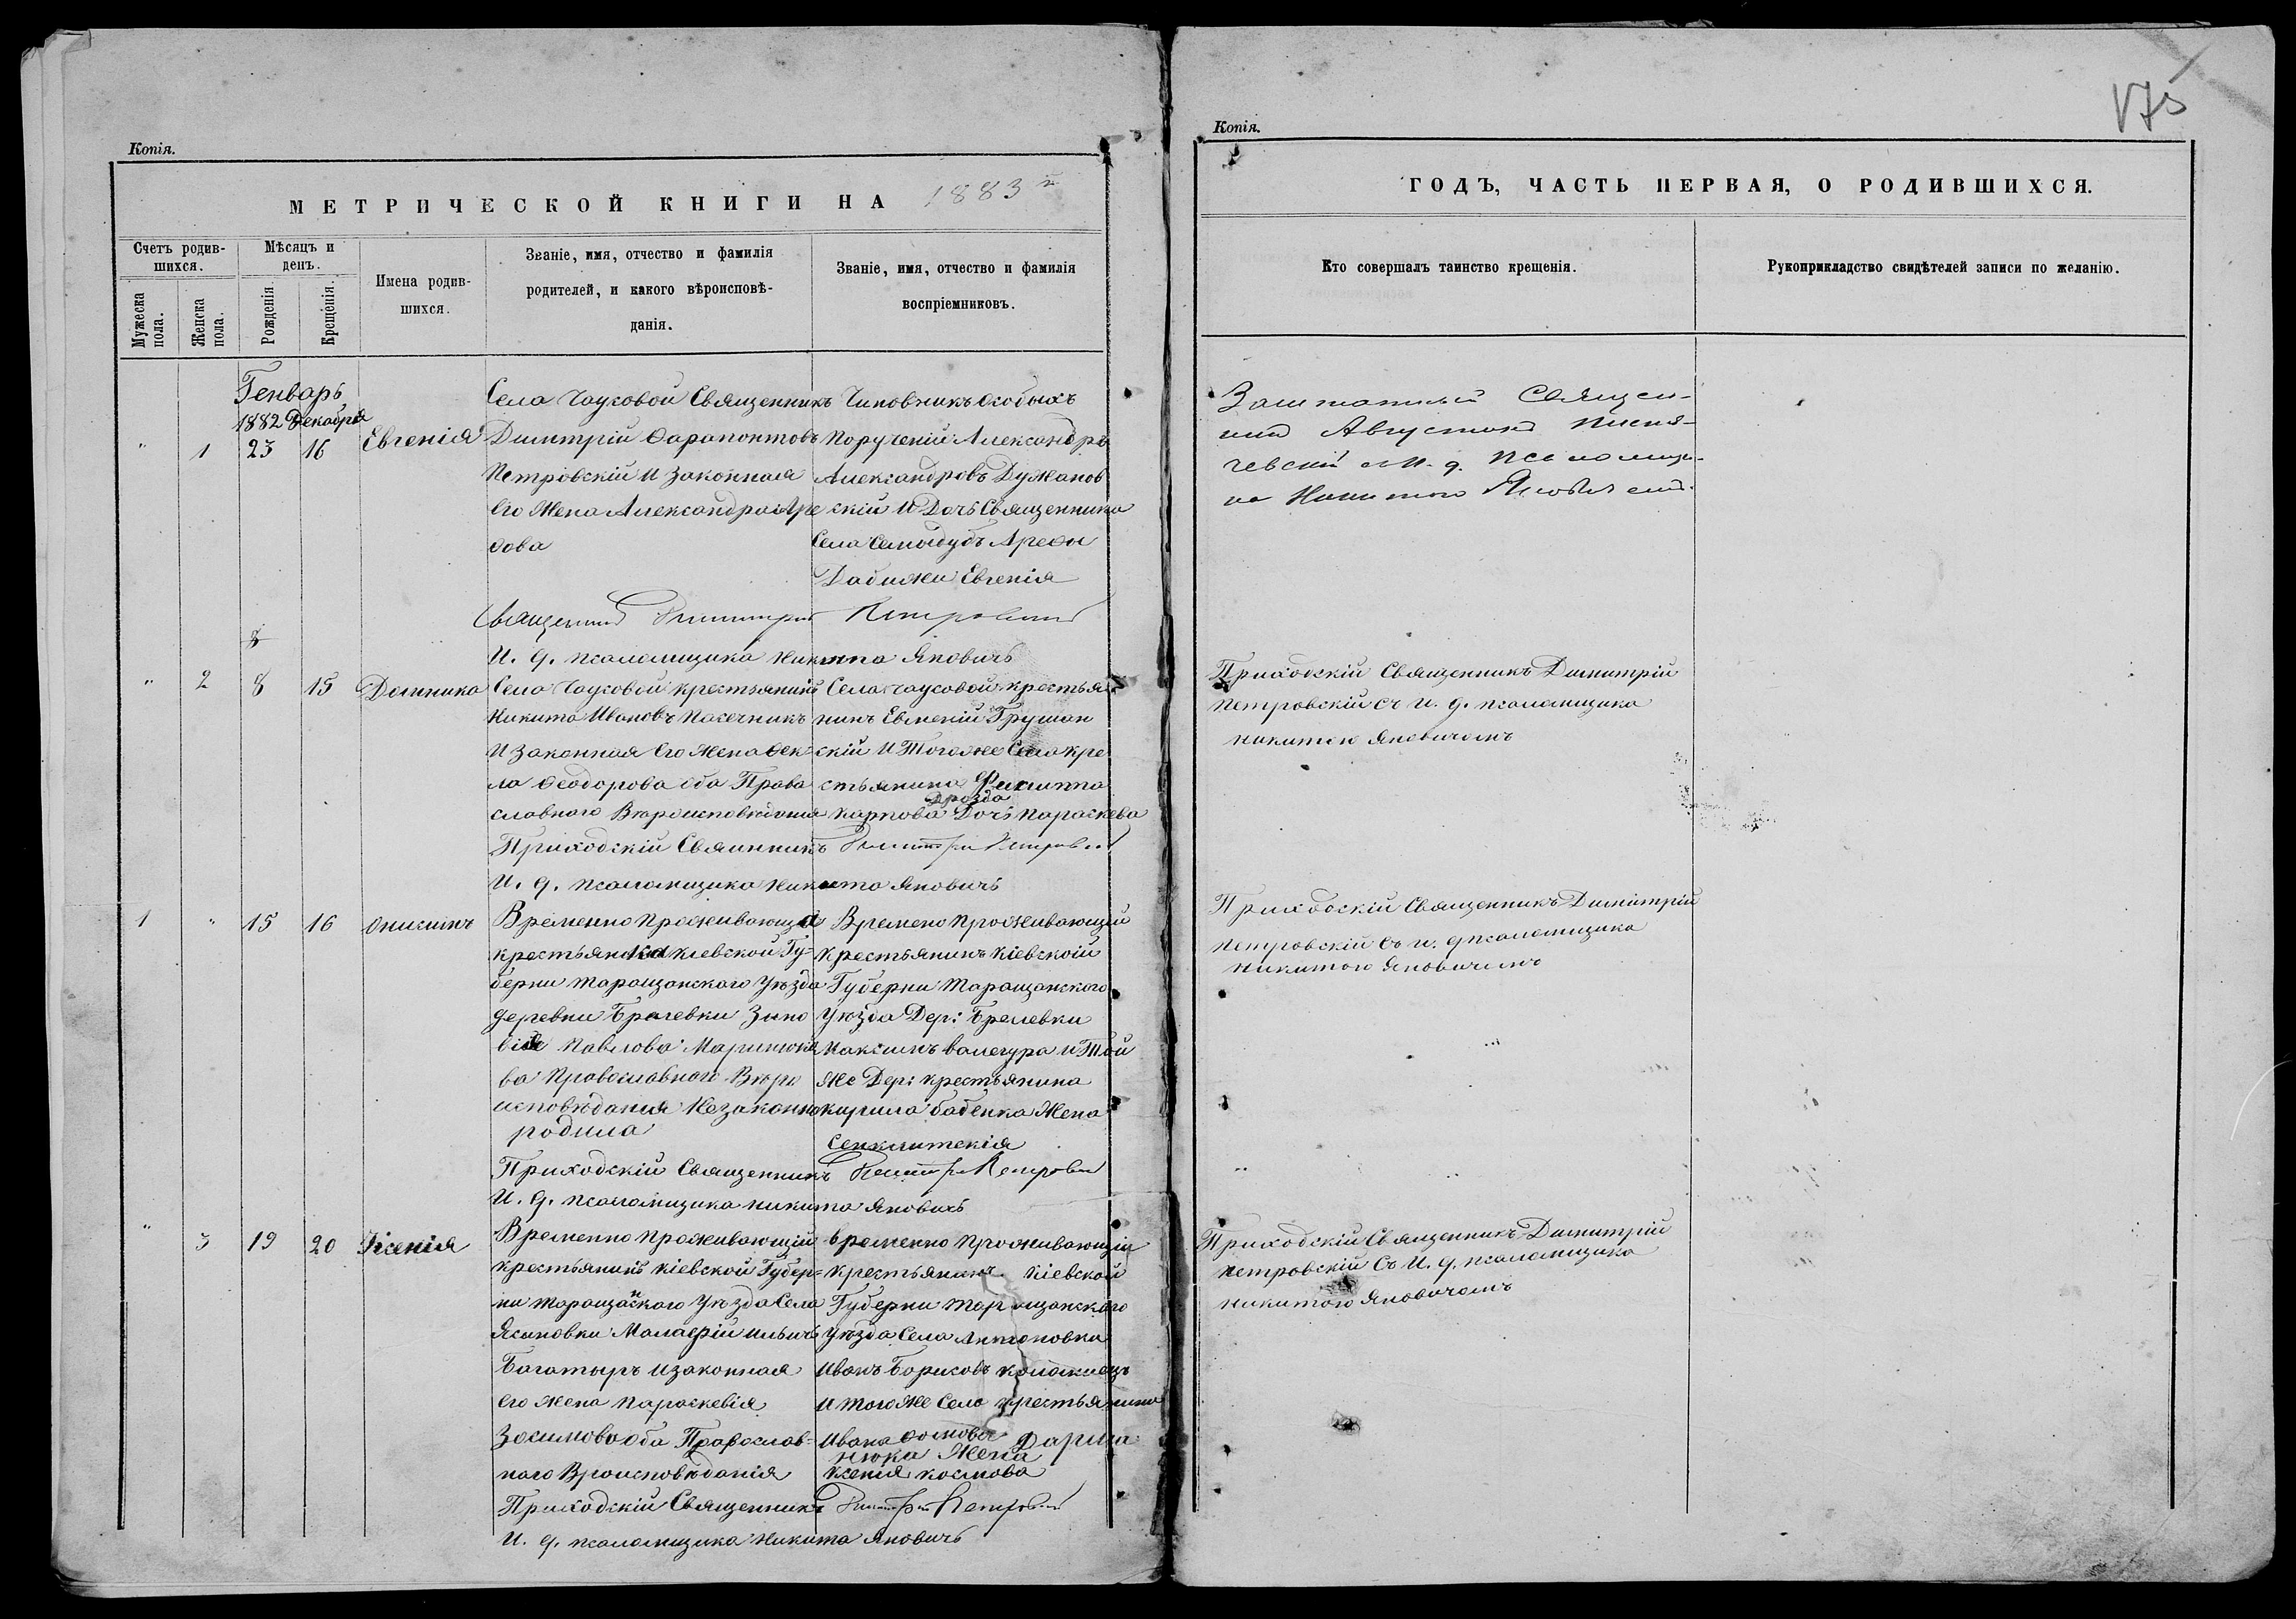 Копія.
МЕТРИЧЕСКОЙ КНИГИ НА 1883
Счетъ родив-
шихся.
Мужеска
пола.
Женска
пола.
Мѣсяцъ и
день.
Рожденія.
Крещенія.
Имена родив-
шихся.
Званіе, имя, отчество и фамилія
родителей, и какого вѣроисповѣ-
данія.
Званіе, имя, отчество и фамилія
воспріемниковъ.
Генварь
1882 Декабря
" 1 23 16 Евгенія
Села Чаусовой Священникъ
Димитрій Фарапонтовъ
Петровскій и законная
его жена Александра Аре
фова
Чиновникъ особыхъ
порученій Александръ
Александровъ Думанов
скій и Дочь Священника
Села Семидубъ Арефы
Дабижи Евгенія
Священникъ Димитрій Петровскій
И. д. псаломщика Никита Яновичъ
8
" 2 8 15 Домника
Села Чаусовой крестьянинъ
Никита Ивановъ Пасечникъ
и законная его жена Фек
ла Феодорова оба Право
славнаго Вѣроисповѣданія
Села Чаусовой крестья
нинъ Евменій Грушан
скій и Того же Села кре
стьянина Филиппа
Дрозда
Карпова Дочь Параскева
Приходскій Свяшнникъ Димитрій Петровскій
И. д. псаломщика Никита Яновичъ
1 " 15 16 Онисимъ
Временно проживающая
крестьянка Кіевской Гу-
берни Таращанскаго Уѣзда
деревни Бралевки Зино
вія Павлова Маринюко
ва Православнаго Вѣро
исповѣданія Незаконно
родила
Времено проживающій
крестьянинъ Кіевской
Губерни Таращанскаго
Уѣзда Дер: Бралевки
Максимъ и Той
же Дер: крестьянина
Кирила Бабенка Жена
Сенклитекія
Приходскій Священникъ Димитрій Петровскій
И. д. псаломщика Никита Яновичъ
" 3 19 20 Ксенія
Временно проживающій
крестьянинъ Кіевской Губер=
ни Таращанского Уѣзда Села
Ясиновки Малафій Ильичъ
Багатырь и законная
его жена Параскевія
Зосимова оба Православ-
наго Вроисповѣданія
временно проживающій
крестьянинъ Кіевской
Губерни Таращанскаго
Уѣзда Села Антоновки
Иванъ Борисовъ
и того же Села крестьянина
Ивана Фомова Дарма
нюка Жена
Ксенія Космова
Приходскій Священникъ Димитрій Петровскій
И. д. псаломщика Никита Яновичъ
Копія.
175
ГОДЪ, ЧАСТЬ ПЕРВАЯ, О РОДИВШИХСЯ.
Кто совершалъ таинство крещенія.
Рукоприкладство свидѣтелей записи по желанію.
Заштатный Священ-
никъ Августинъ
чевскій с И. д. псаломщи-
ка Никитою Яновичемъ.
Приходскій Священникъ Димитрій
Петровскій съ И. д. псаломщика
Никитою Яновичемъ
Приходскій Священникъ Димитрій
Петровскій съ и. д псаломщика
Никитою Яновичемъ
Приходскій Священникъ Димитрій
Петровскій съ И. д. псаломщика
Никитою Яновичемъ